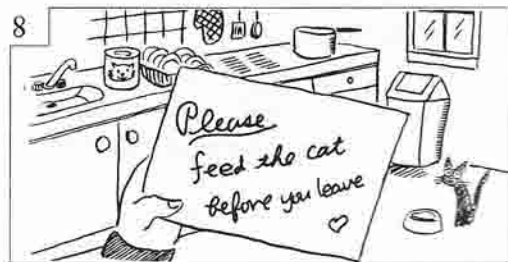 8
Please
feed the cat
before you leave